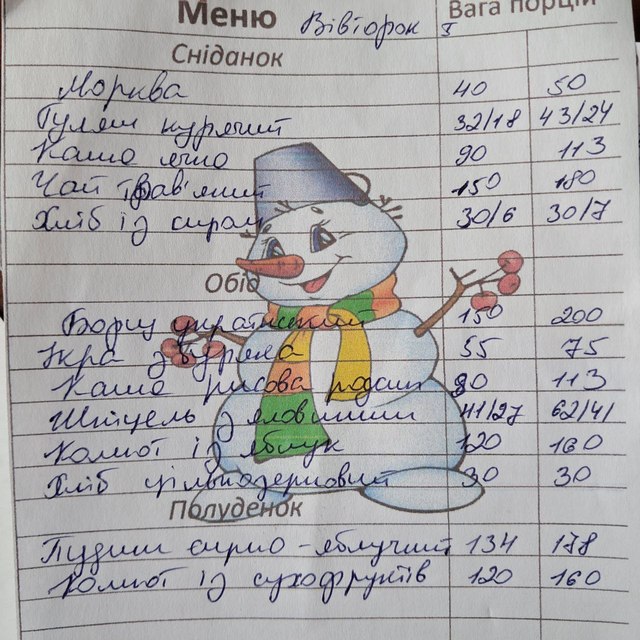 Меню Вівторок I Вага порцій
Сніданок
Морква 40 50
Гуляш курячий 32/18 43/24
Каша ячна 90 113
Чай трав'яний 150 180
Хліб із сиром 30/6 30/7
Обід
Борщ український 150 200
Ікра з буряка 55 75
Каша рисова розсип 90 113
Шніцель з яловичини 41/27 62/41
Компот із яблук 120 160
Хліб цільнозерновий 30 30
Полуденок
Пудинг сирно-яблучний 134 178
Компот із сухофруктів 120 160